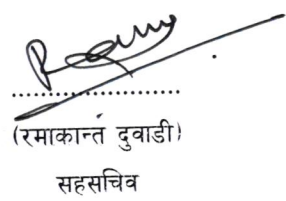 (रमाकान्त दुवाडी)
सहसचिव